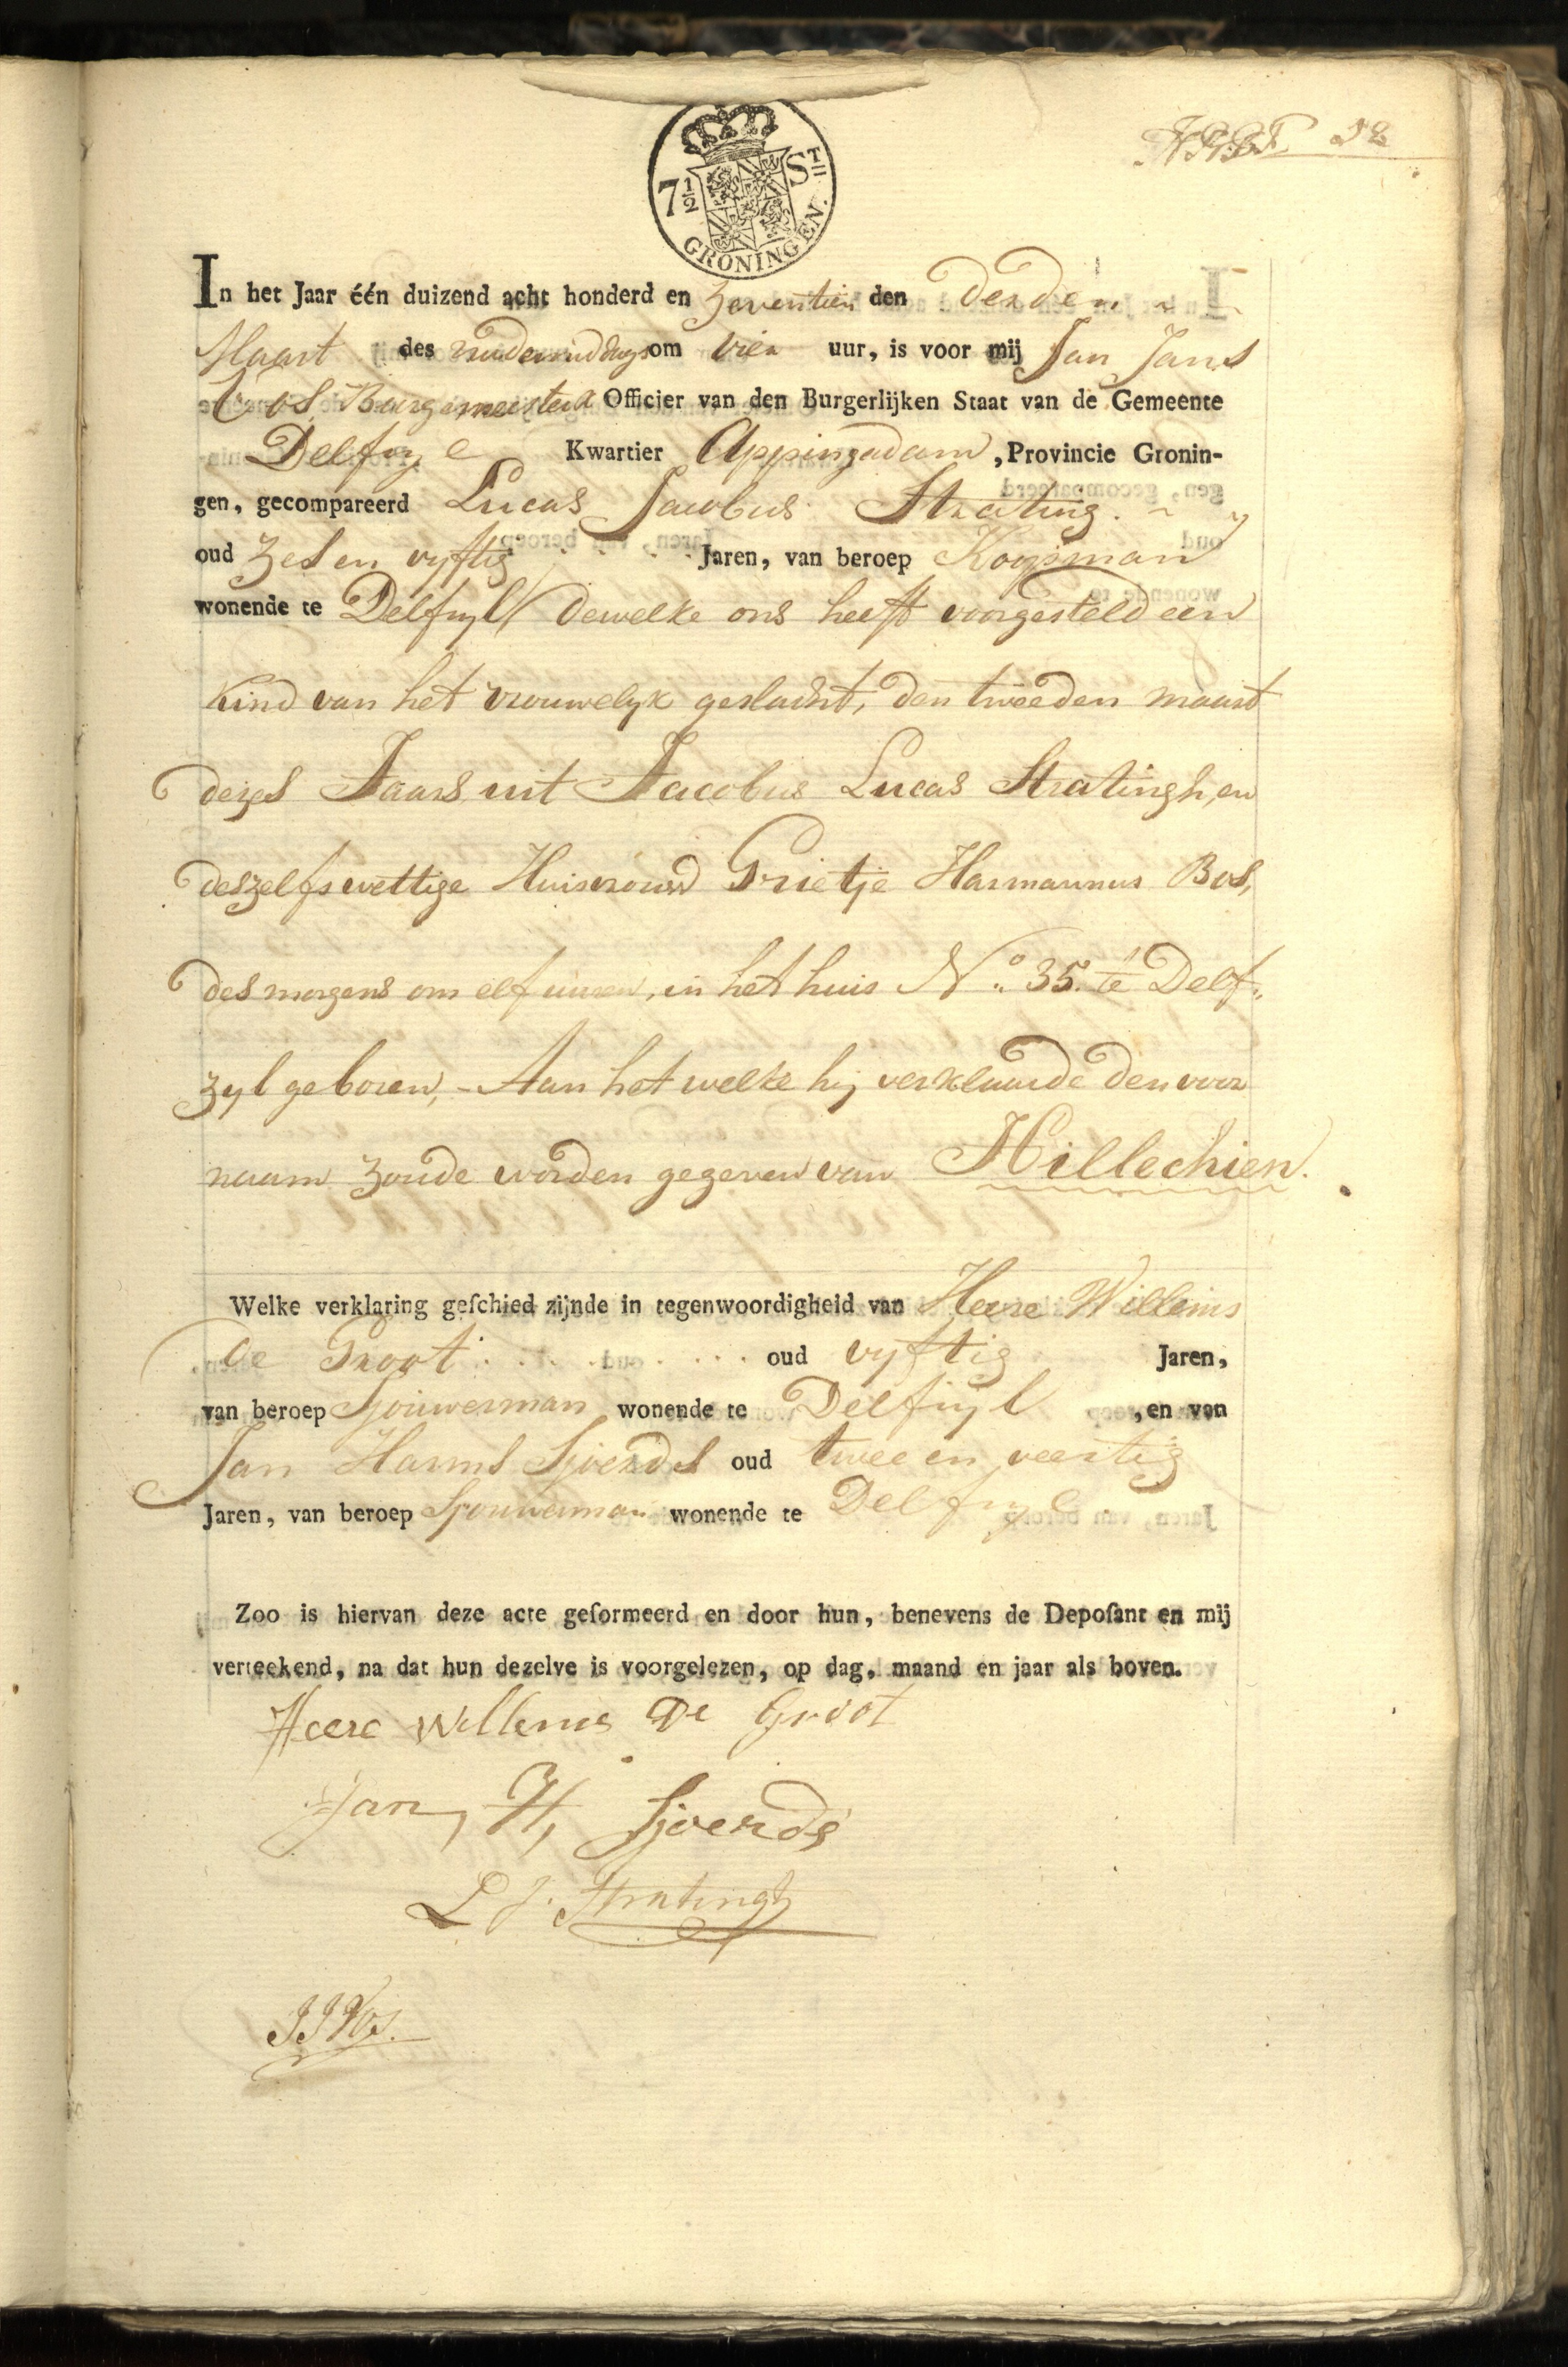 7½ St
GRONINGEN.
In het Jaar één duizend acht honderd en zeventien den derden
Maart des nademiddags om vier uur, is voor mij Jan Jans
Vos Burgemeester Officier van den Burgerlijken Staat van de Gemeente
Delfzyl Kwartier Appingadam, Provincie Gronin-
gen, gecompareerd Lucas Jacobus Strating.
oud zes en vyftig Jaren, van beroep Koopman
wonende te Delfzyl dewelke ons heeft voorgesteld een
Kind van het vrouwelyk geslacht, den tweeden maart
dezes Jaars uit Jacobus Lucas Stratingh, en
deszelfs wettige Huisvrouw Grietje Harmannus Bos,
des morgens om elf uuren, in het huis No. 35. te Delf„
zyl geboren, - Aan het welke hij verklaarde den voor
naam zoude worden gegeven van Hillechien.
Welke verklaring geschied zijnde in tegenwoordigheid van Heere Willems
de Groot oud vyftig Jaren,
van beroep Sjouwerman wonende te Delfzyl, en van
Jan Harms Sjoerds oud twee en veertig
Jaren, van beroep Sjouwerman wonende te Delfzyl
Zoo is hiervan deze acte geformeerd en door hun, benevens de Deposant en mij
verteekend, na dat hun dezelve is voorgelezen, op dag, maand en jaar als boven.
Heere Willems De Groot
Jan, H, Sjoerds
L J. Stratingh
J J Vos.